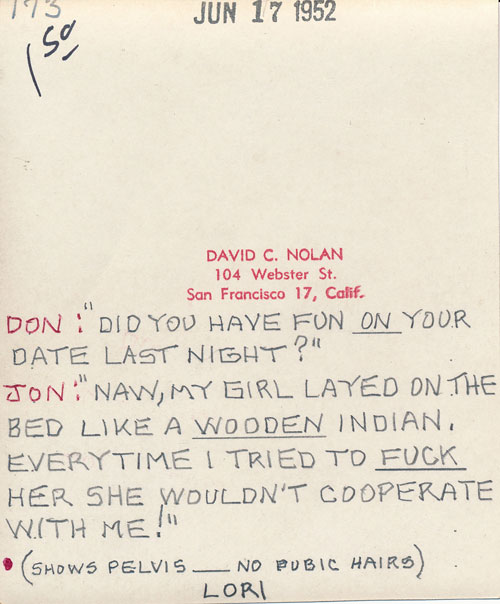 173
JUN 17 1952
1 50
DAVID C. NOLAN
104 Webster St.
San Francisco 17, Calif.
DON: "DID YOU HAVE FUN ON YOUR
DATE LAST NIGHT?"
JON: "NAW, MY GIRL LAYED ON THE
BED LIKE A WOODEN INDIAN.
EVERYTIME I TRIED TO FUCK
HER SHE WOULDN'T COOPERATE
WITH ME!"
• (SHOWS PELVIS — NO PUBIC HAIRS)
LORI